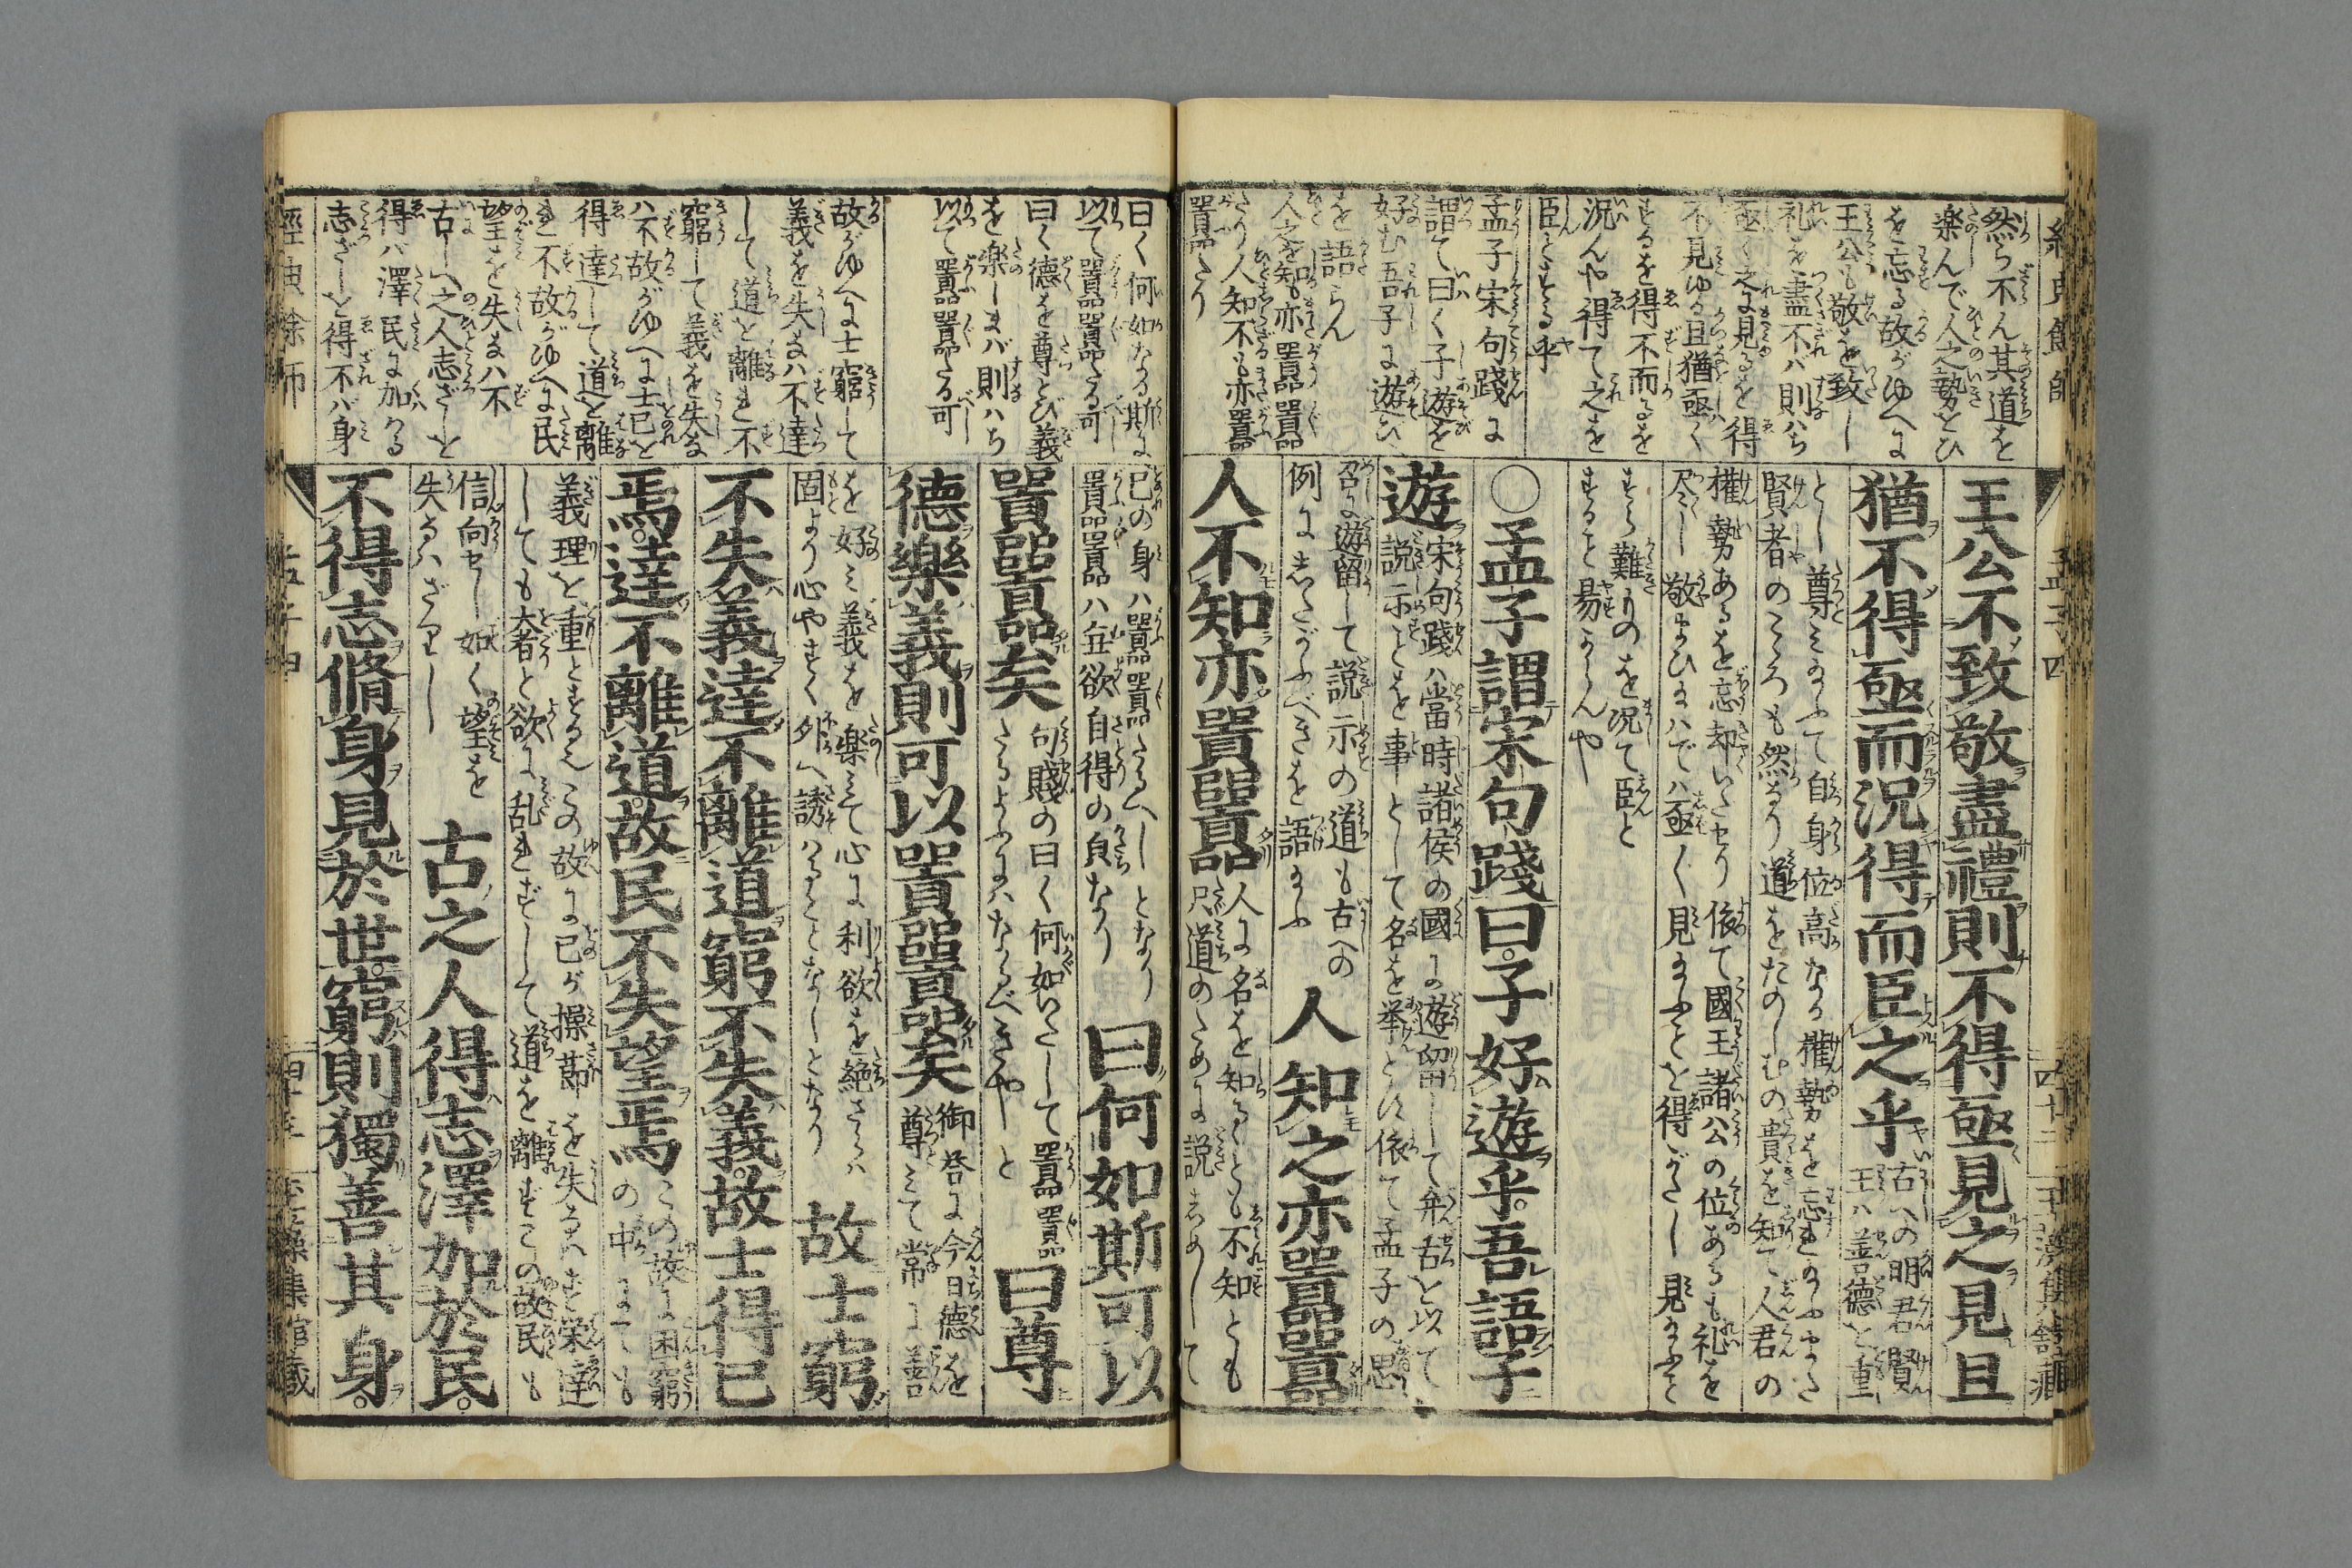 然ら不ん其道を
楽んで人之勢とひ
を忘る故がゆへに
王公も敬を致し
礼を盡不ハ則ハち
亟く之に見るを得
不見ゆる且猶亟く
するを得不而るを
況んや得て之を
臣とする乎
孟子宋句踐に
謂て曰く子遊を
好む吾子に遊ひ
を語らん
人之を知も亦囂囂
たり人知不も亦囂
囂たり
王公不致敬盡禮則不得亟見之見且
猶不得亟而況得而臣之乎
古への明君賢
王ハ善徳を重
とし尊みたふて自身位高なる權勢を忘れたふまた
賢者のころも然り道をたのしむの貴を知て人君の
權勢あるを忘却いたせり依て國王諸公の位あるも礼を
尽し敬まひまハでハ亟く見まふとを得がたし見まふと
すら難ものを况て臣と
すると易からんや
○孟子謂宋句踐曰子好遊乎吾語子
遊
宋句踐ハ當時諸侯の國に遊留して弁舌を以て
説示とを事として名を挙とに依て孟子の思
召に遊留して説示の道も古への
例にしたがふべきを語まふ
人知之亦囂囂
人不知亦囂囂
人に名を知るとも不知とも
只道のために説しめして
曰く何如なる斯に
以て囂囂たる可
曰く德を尊とび義
を楽しまバ則ハち
以て囂囂たる可
故がゆへに士窮して
義を失まハ不達
して道を離れ不
窮して義を失ま
ハ不故がゆへに士已を
得達して道を離
れ不故がゆへに民
望を失まハ不
古しへ之人志ざしを
得バ澤民に加ハる
志ざしを得不バ身
己の身ハ囂囂たるへしとなり
囂囂ハ無欲自得の貞なり
曰何如斯可以
囂囂矣
句賤の曰く何如いたして囂囂
たるよふにハたるべきやしと
曰尊
德樂義則可以囂囂矣
御答に今日德を
尊みて常に善
を好み義を楽みて心に利欲を絶さらハ
固より心やすく外へ誘ハるとなしとなり
故士窮
不失義達不離道窮不失義故士得已
焉達不離道故民不失望焉
この故に困窮
の中にても
義理を重とするこの故に已が操節を失るハず栄達
しても大者と欲に乱れずして道を離ずこの故民も
信向せし如く望を
失るハざりし
古之人得志澤加於民
不得志脩身見於世窮則獨善其身